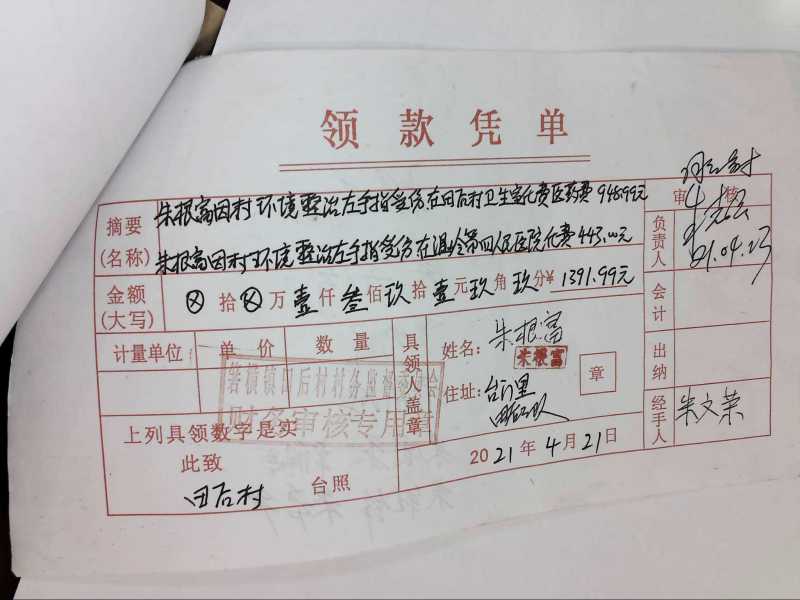 领款凭单
同意付
审核
21.04.23
摘要
(名称)
朱根富因村环境整治左手指受伤在田后村卫生室化费医药费948.99元
朱根富因村环境整治左手指受伤在温岭第四人民医院化费443.00元
负责人
金额
(大写)
⊗拾⊗万壹仟叁佰玖拾壹元玖角玖分¥1391.99元
会计
计量单位 单价 数量
具领人盖章
姓名: 朱根富
朱根富
章
住址: 台门里
出纳
箬横镇田后村村务监督委员会
财务审核专用章
上列具领数字是实
此致
田后村 台照
2021年4月21日
经手人
朱文荣